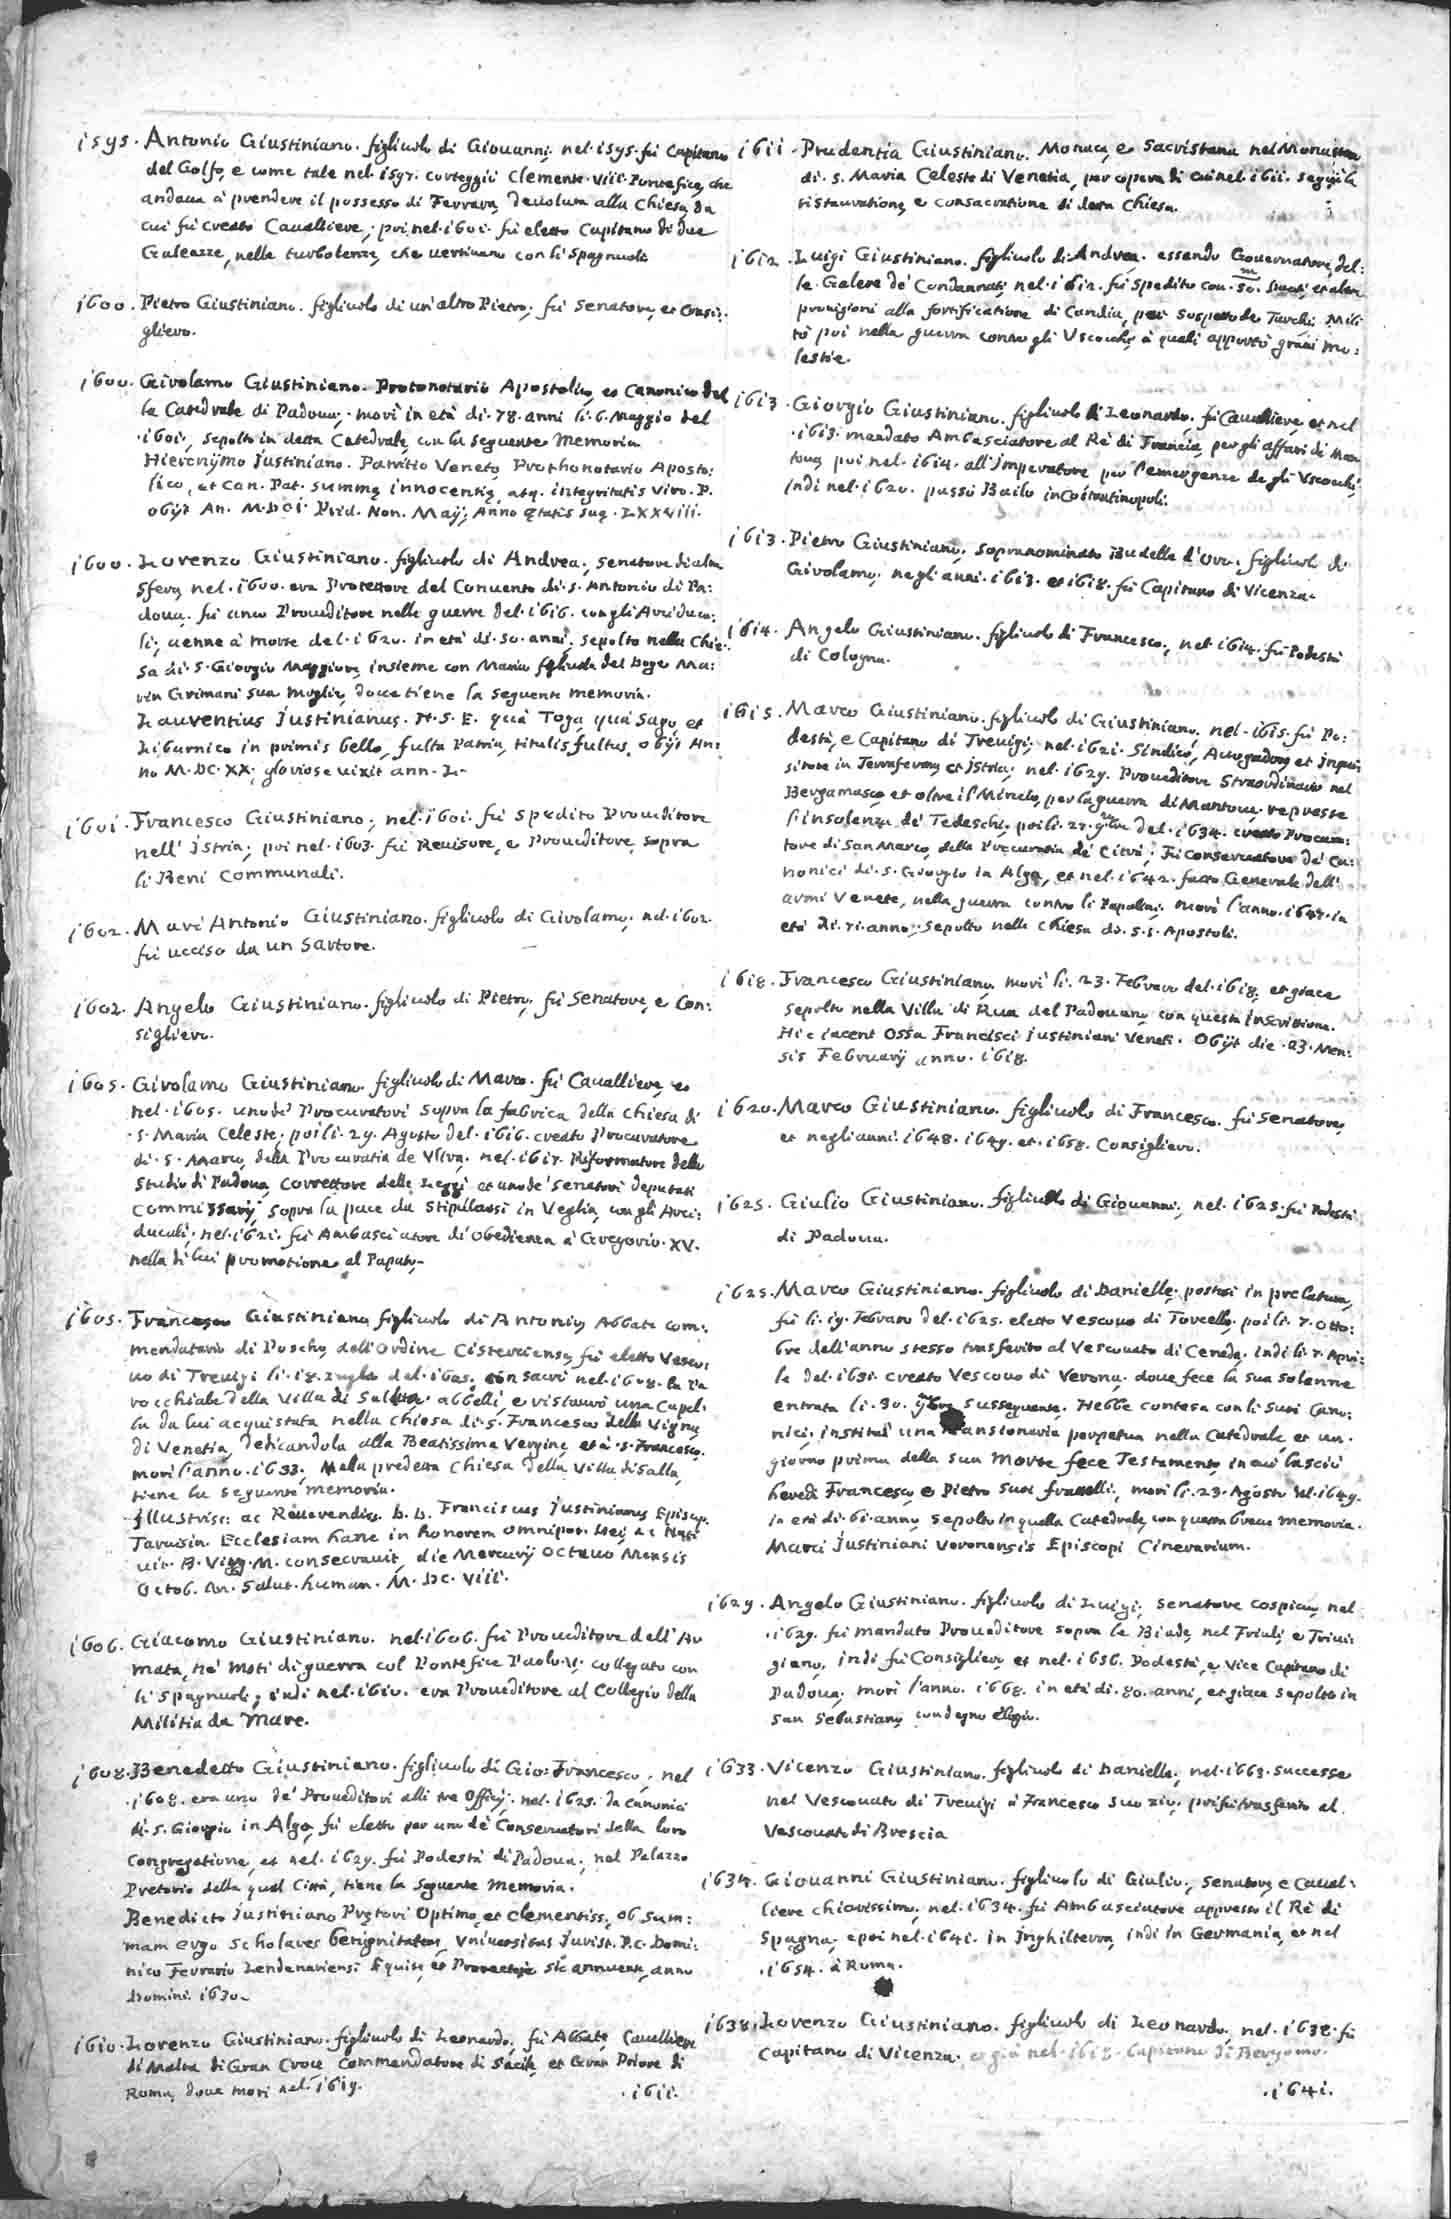 1595. Antonio Giustiniano. figliuolo di Giouanni, nel. 1595. fù Capitano
del Golfo, e come tale nel. 1597. corteggiò Clemente. VIII. Pontefice, che
andaua à prendere il possesso di Ferrara, deuoluta alla Chiesa, da
cui fù creato Cauelliere; poi nel. 1601. fù eletto Capitano di due
Galeazze, nelle turbolenze, che uertiuano con li Spagnuoli.
1600. Pietro Giustiniano. figliuolo di un'altro Pietro; fù Senatore, et Consi:
gliero.
1600. Girolamo Giustiniano. Protonotario Apostolico, et Canonico del
la Catedrale di Padoua; morì in età di. 78. anni li. 6. Maggio del
.1601., sepolto in detta Catedrale, con la seguente memoria.
Hieronymo Justiniano. Patritio Veneto, Prothonotario Aposto:
lico, et Can. Pat. summę innocentię, atq. integritatis viro. P.
obijt An. M.DCI. Prid. Non. Maij, Anno ętatis suę. LXXVIII.
1600. Lorenzo Giustiniano. figliuolo di Andrea; senatore di alta
sfera, nel. 1600. era Protettore del Conuento di. S. Antonio di Pa:
doua. fù anco Proueditore nelle guerre del. 1616. con gli Arciduca:
li; uenne à morte del. 1620. in età di. 50. anni, sepolto nella Chie:
sa di. S. Giorgio Maggiore, insieme con Maria figliuola del Doge Ma:
rin Grimani sua moglie, doue tiene la seguente memoria.
Laurentius Justinianus. H. S. E. quà Toga, quà Sago, et
Liburnico in primis bello, fulta Patria, titulis fultus, obijt An:
no M. DC. XX; gloriose uixit ann. L.
1601. Francesco Giustiniano; nel. 1601. fù spedito Proueditore
nell' Istria; poi nel. 1603. fù Reuisore, e Proueditore sopra
li Beni Communali.
1602. Marc'Antonio Giustiniano. figliuolo di Girolamo; nel. 1602.
fù ucciso da un Sartore.
1602. Angelo Giustiniano. figliuolo di Pietro, fù Senatore, e Con:
sigliero.
1605. Girolamo Giustiniano. figliuolo di Marco. fù Cauelliere, et
nel. 1605. uno de' Procuratori sopra la fabrica della Chiesa di
.S. Maria Celeste; poi li. 29. Agosto del. 1616. creato Procuratore
di. S. Marco, della Procuratia de Vltra; nel. 1617. Riformatore dello
Studio di Padoua, Correttore delle Leggi et uno de' Senatori deputati
Commissarij sopra la pace da stipularsi in Veglia, con gli Arci:
ducali; nel. 1621. fù Ambasciatore di obedienza à Gregorio. XV.
nella di lui promotione al Papato.
1605. Francesco Giustiniano figliuolo di Antonio, Abbate com:
mendatario di Busco, dell'Ordine Cisterciense, fù eletto Vesco:
uo di Treuigi li. 18. luglio del. 1605. consacrò nel. 1608. la Pa
rocchiale della Villa di Salla. abbellì, e ristaurò una Capel:
la da lui acquistata nella chiesa di. S. Francesco della Vigna
di Venetia, dedicandola alla Beatissima Vergine, et à. S. Francesco.
morì l'anno. 1633; Nella predetta Chiesa della Villa di Salla,
tiene la seguente memoria.
Illustriss: ac Reuerendiss. D. D. Franciscus Justinianus Episcop.
Taruisin. Ecclesiam hanc in honorem omnipot. Dei, ac Nati
uit. B. Virg. M. consecrauit, die Mercurij Octauo Mensis
Octob. An. Salut. human. M. DC. VIII.
1606. Giacomo Giustiniano. nel. 1606. fù Proueditore dell'Ar
mata, ne' moti di guerra col Pontefice Paolo. V. collegato con
li Spagnuoli; indi nel. 1610. era Proueditore al Collegio della
Militia da Mare.
1608. Benedetto Giustiniano. figliuolo di Gio: Francesco; nel
.1608. era uno de' Proueditori alli tre Officij. nel. 1625. da Canonici
di. S. Giorgio in Alga, fù eletto per uno de' Conseruatori della loro
Congregatione, et nel. 1629. fù Podestà di Padoua; nel Palazzo
Pretorio della qual Città, tiene la seguente memoria.
Benedicto Justiniano Prętori Optimo, et clementiss, ob sum:
mam ergo scholares benignitatem, Vniuersitas Jurist. P. C. Domi:
nico Ferrario Lendenariensi Equite, et Prorectore sic annuente, anno
Domini. 1630.
1610. Lorenzo Giustiniano. figliuolo di Leonardo; fù Abbate, Cauelliere
di Malta di Gran Croce, Commendatore di Sacile, et Gran Priore di
Roma, doue morì nel. 1619.
.1611.
1611. Prudentia Giustiniano. Monaca, e Sacristana nel Monastero
di. S. Maria Celeste di Venetia, per opera di cui nel. 1611. seguì la
ristauratione, e consacratione di detta Chiesa.
1612. Luigi Giustiniano. figliuolo di Andrea. essendo Gouernatore del:
le Galere de' Condannati, nel. 1612. fù spedito con. 50. ducati, et altre
prouigioni alla fortificatione di Candia, per sospetto de Turchi. Mili
tò poi nella guerra contro gli Vscocchi, à quali apportò graui mo:
lestie.
1613. Giorgio Giustiniano. figliuolo di Leonardo. fù Cauelliere, et nel
.1613. mandato Ambasciatore al Rè di Francia, per gli affari di Man
toua, poi nel. 1614. all'Imperatore per l'emergenze degli Vscocchi,
indi nel. 1620. passò Bailo in Costantinopoli.
1613. Pietro Giustiniano, sopranominato Budella d'Oro. figliuolo di
Girolamo; negli anni. 1613. et 1618. fù Capitano di Vicenza.
1614. Angelo Giustiniano. figliuolo di Francesco; nel. 1614. fù Podestà
di Cologna.
1615. Marco Giustiniano. figliuolo di Giustiniano, nel. 1615. fù Po:
destà, e Capitano di Treuigi; nel. 1621. Sindico, Auogadore, et inqui
sitore in Terraferma, et Istria; nel. 1629. Proueditore Straordinario nel
Bergamasco, et oltre il Mincio, per la guerra di Mantoua; represse
l'insolenza de' Tedeschi. poi li. 27. del. 1634. creato Procura:
tore di San Marco, della Procuratia de' Citrà; fù Conseruatore de' Ca:
nonici di. S. Giorgio in Alga, et nel. 1642. fatto Generale dell'
armi Venete, nella guerra contro li Papalini. morì l'anno. 1647. in
età di. 71. anno; sepolto nella Chiesa di. S. S. Apostoli.
1618. Francesco Giustiniano, morì li. 23. Febraro del. 1618, et giace
sepolto nella Villa di Rua del Padouano, con questa Inscrittione.
Hic iacent Ossa Francisci Justiniani Veneti. Obijt die. 23. Men:
sis Februarij anno. 1618.
1620. Marco Giustiniano. figliuolo di Francesco. fù Senatore,
et negli anni. 1648. 1649. et. 1658. Consigliero.
1625. Giulio Giustiniano. figliuolo di Giouanni; nel. 1625. fù Podestà
di Padoua.
1625. Marco Giustiniano. figliuolo di Danielle; postosi in prelatura,
fù li. 19. Febraro del. 1625. eletto Vescouo di Torcello, poi li. 7. Otto:
bre dell'anno stesso trasferito al Vescouato di Ceneda, indi li. 7. Apri:
le del. 1631. creato Vescouo di Verona; doue fece la sua solenne
entrata li. 30. susseguente. Hebbe contesa con li suoi Cano:
nici. instituì una Mansionaria perpetua nella Catedrale, et un
giorno prima della sua Morte fece Testamento, in cui lasciò
heredi Francesco, e Pietro suoi fratelli; morì li. 23. Agosto del. 1649.
in età di. 61. anno, sepolto in quella Catedrale, con questa breue memoria.
Marci Justiniani Veronensis Episcopi Cinerarium.
1629. Angelo Giustiniano. figliuolo di Luigi; Senatore cospicuo, nel
.1629. fù mandato Proueditore sopra le Biade, nel Friuli, e Triui:
giano; indi fù Consigliero, et nel. 1656. Podestà, e Vice Capitano di
Padoua; morì l'anno. 1668. in età di. 80. anni, et giace sepolto in
San Sebastiano, con degno elogio.
1633. Vicenzo Giustiniano. figliuolo di Danielle; nel. 1663. successe
nel Vescouato di Treuigi à Francesco suo zio; poi fù trasferito al
Vescouato di Brescia
1634. Giouanni Giustiniano. figliuolo di Giulio; Senatore, e Cauel:
liere chiarissimo; nel. 1634. fù Ambasciatore appresso il Rè di
Spagna; e poi nel. 1641. in Inghilterra, indi in Germania, et nel
.1654. à Roma.
1638. Lorenzo Giustiniano. figliuolo di Leonardo. nel. 1638. fù
Capitano di Vicenza. et già nel. 1618. Capitano di Bergamo.
.1641.